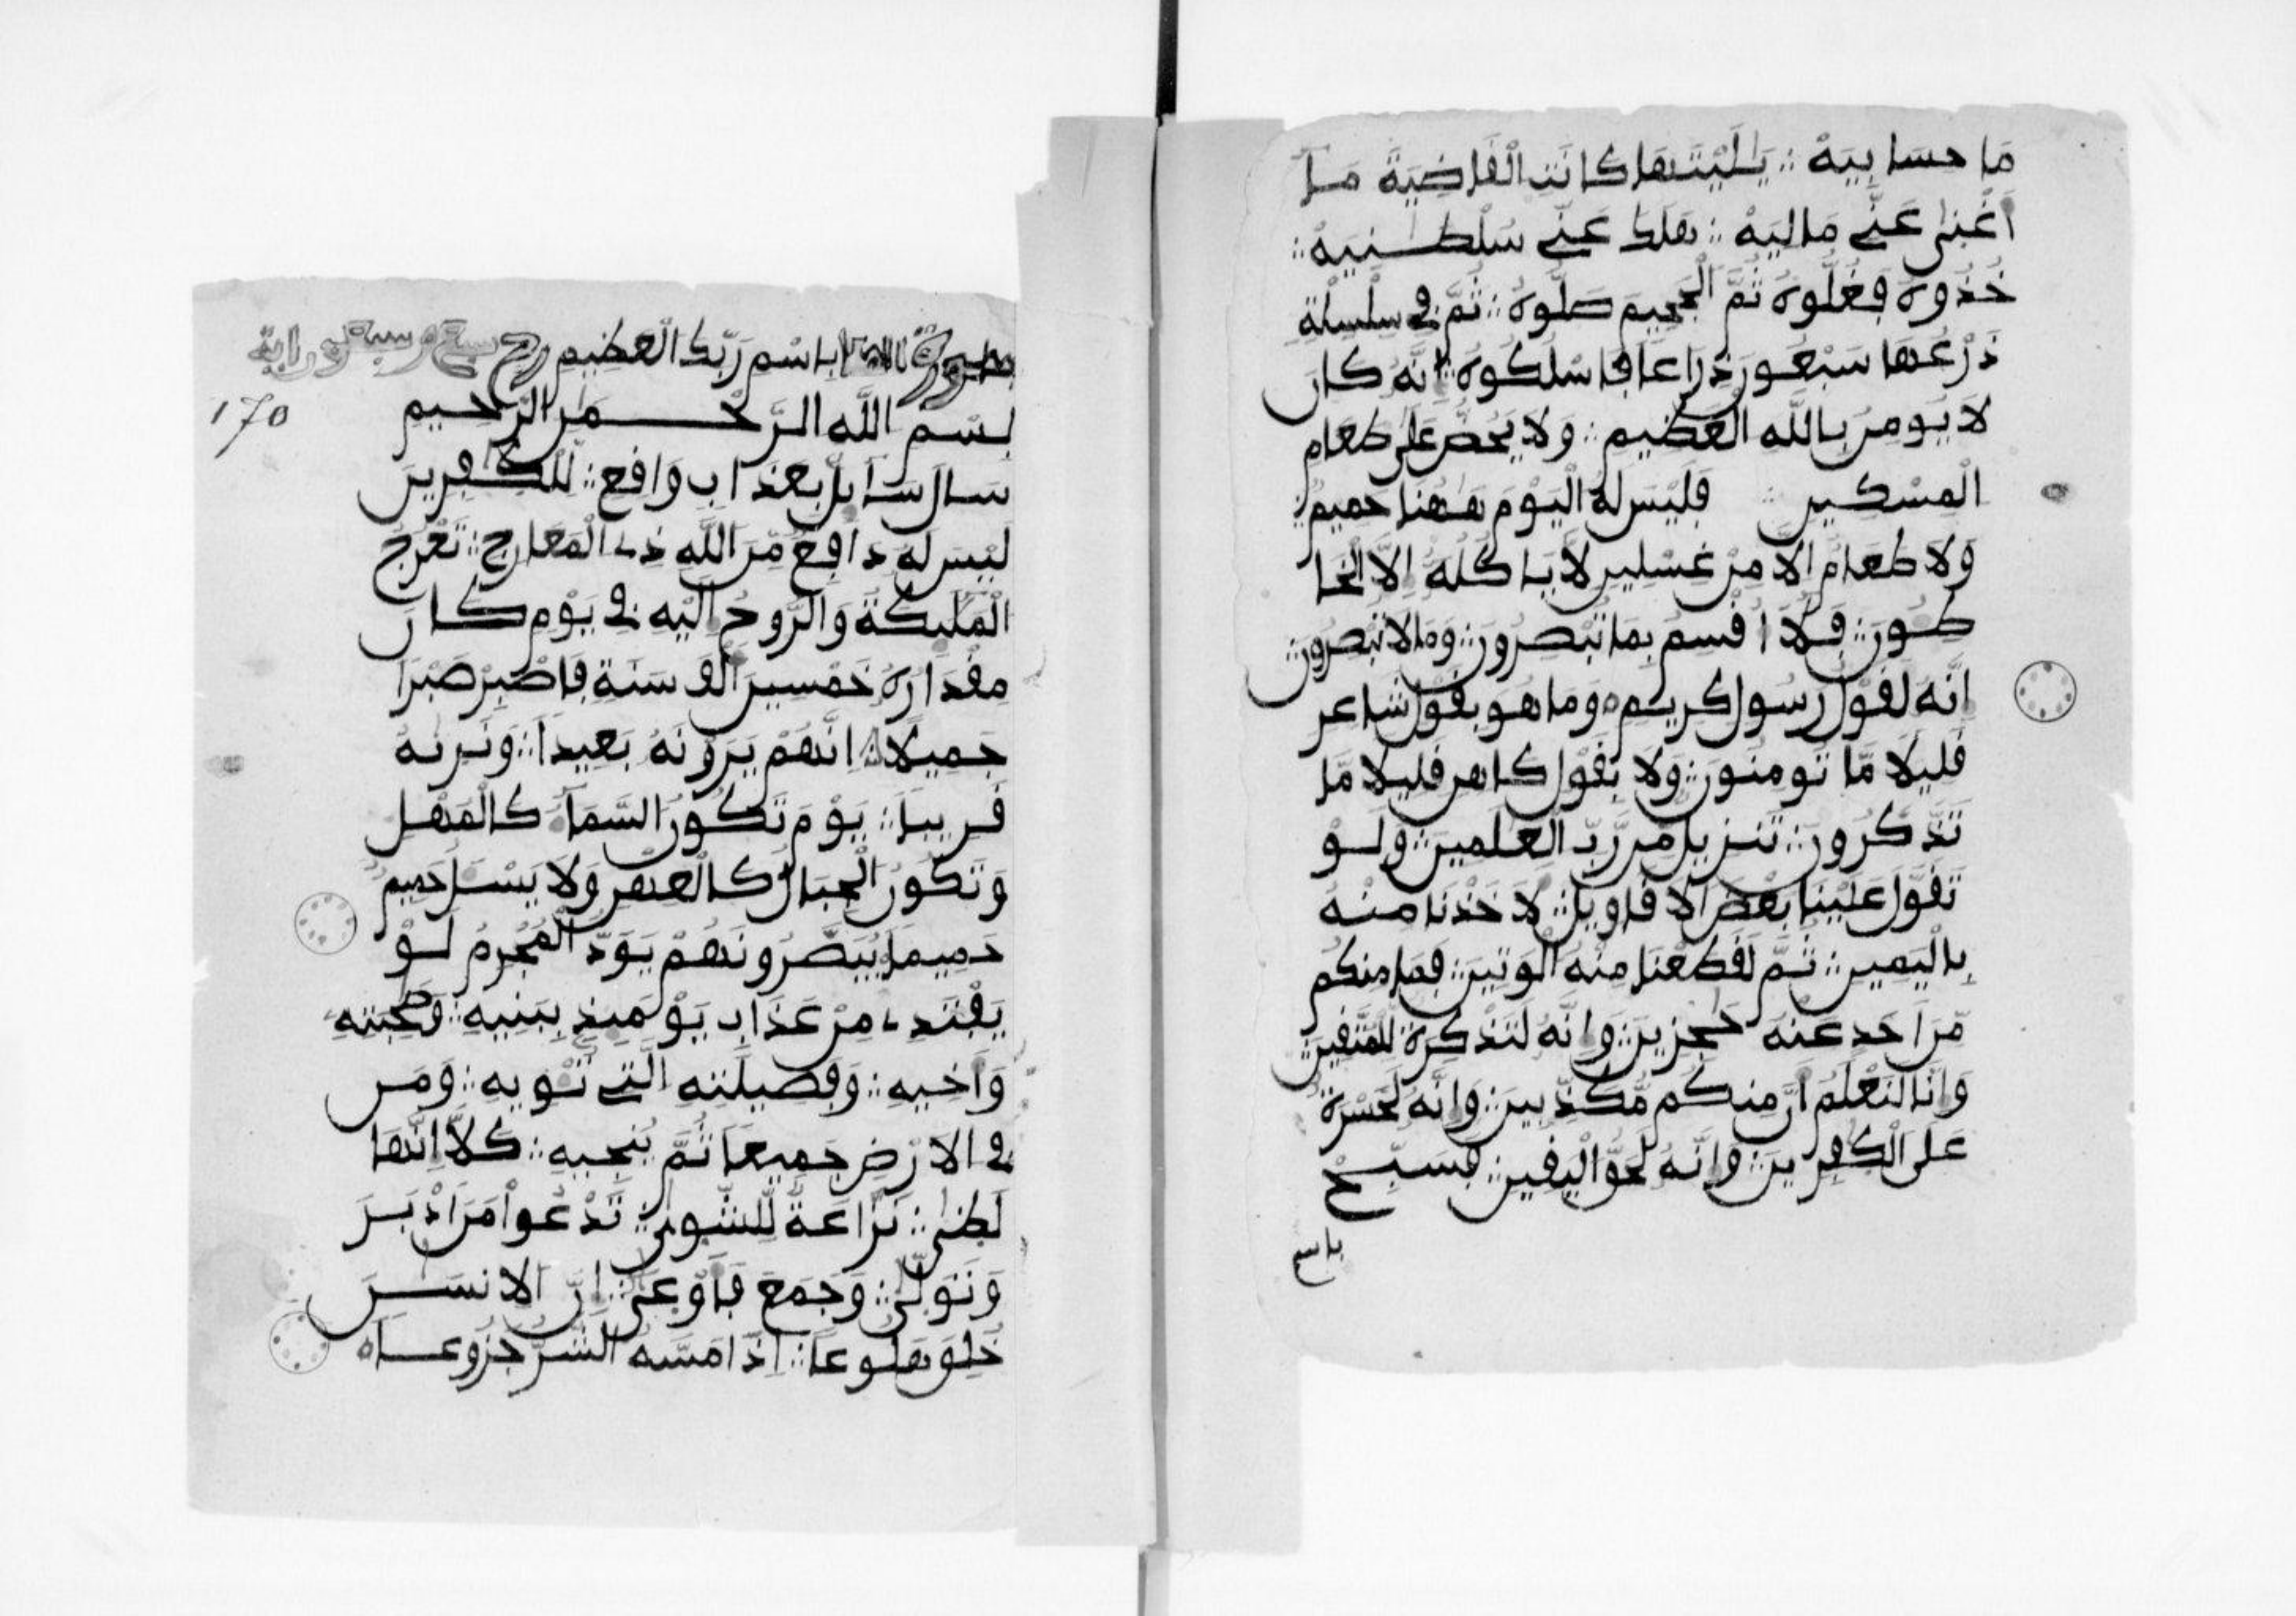 مَا حسَابِيَهْ ؞ يَٰلَيْتَهَا كَانَتِ الْقَاضِيَةَ مَا
أَغْنىٰ عَنِّے مَالِيَهْ ؞ هَلَكَ عَنِّے سُلْطَٰنِيَهْ ؞
خُذُوهُ فَغُلُّوهُ ثُمَّ الْجَحِيمَ صَلُّوهُ ؞ ثُمَّ فِي سِلْسِلَةٍ
ذَرْعُهَا سَبْعُونَ ذِرَاعاً فَاسْلُكُوهُ إِنَّهُ كَانَ
لَا يُومِنُ بِاللَّهِ الْعَظِيمِ ؞ وَلَا يَحُضُّ عَلَىٰ طَعَامِ
الْمِسْكِينِ ؞ فَلَيْسَ لَهُ الْيَوْمَ هَٰهُنَا حَمِيمٌ ؞
وَلَا طَعَامٌ اِلَّا مِنْ غِسْلِينٍ لَّا يَاكُلُهُ إِلَّا الْخَا
طُونَ ؞ فَلَا أُقْسِمُ بِمَا تُبْصِرُونَ ؞ وَمَا لَا تُبْصِرُونَ ؞
إِنَّهُ لَقَوْلُ رَسُولٍ كَرِيمٍ وَمَا هُوَ بِقَوْلِ شَاعِرٍ
قَلِيلًا مَّا تُومِنُونَ ؞ وَلَا بِقَوْلِ كَاهِنٍ قَلِيلًا مَّا
تَذَّكَّرُونَ ؞ تَنزِيلٌ مِّن رَّبِّ الْعَٰلَمِينَ ؞ وَلَوْ
تَقَوَّلَ عَلَيْنَا بَعْضَ الَاقَاوِيلِ ؞ لَأَخَذْنَا مِنْهُ
بِالْيَمِينِ ؞ ثُمَّ لَقَطَعْنَا مِنْهُ الْوَتِينَ ؞ فَمَا مِنكُم
مِّنَ اَحَدٍ عَنْهُ حَٰجِزِينَ ؞ وَإِنَّهُ لَتَذْكِرَةٌ لِّلْمُتَّقِينَ ؞
وَإِنَّا لَنَعْلَمُ أَنَّ مِنكُم مُّكَذِّبِينَ ؞ وَإِنَّهُ لَحَسْرَةٌ
عَلَى الْكَٰفِرِينَ ؞ وَإِنَّهُ لَحَقُّ الْيَقِينِ ؞ فَسَبِّحْ
باسم
بِاسْمِ رَبِّكَ الْعَظِيمِ
170
بِسْمِ اللَّهِ الرَّحْمَٰنِ الرَّحِيمِ
سَالَ سَايِلٌ بِعَذَابٍ وَاقِعٍ ؞ لِّلْكَٰفِرِينَ
لَيْسَ لَهُ دَافِعٌ مِّنَ اللَّهِ ذِے الْمَعَارِجِ ؞ تَعْرُجُ
الْمَلَٰئِكَةُ وَالرُّوحُ إِلَيْهِ فِي يَوْمٍ كَانَ
مِقْدَارُهُ خَمْسِينَ أَلْفَ سَنَةٍ فَاصْبِرْ صَبْرًا
جَمِيلًا ؞ اِنَّهُمْ يَرَوْنَهُ بَعِيداً ؞ وَنَرٰىهُ
قَرِيباً ؞ يَوْمَ تَكُونُ السَّمَآءُ كَالْمُهْلِ
وَتَكُونُ الْجِبَالُ كَالْعِهْنِ وَلَا يَسْـَٔلُ حَمِيمٌ
حَمِيماً يُبَصَّرُونَهُمْ يَوَدُّ الْمُجْرِمُ لَوْ
يَفْتَدِے مِنْ عَذَابِ يَوْمَئِذٍ بِبَنِيهِ ؞ وَصَٰحِبَتِهِ
وَأَخِيهِ ؞ وَفَصِيلَتِهِ الَّتِي تُـْٔوِيهِ ؞ وَمَن
فِي الَارْضِ جَمِيعاً ثُمَّ يُنجِيهِ ؞ كَلَّا إِنَّهَا
لَظىٰ ؞ نَزَّاعَةٌ لِّلشَّوىٰ ؞ تَدْعُواْ مَنَ اَدْبَرَ
وَتَوَلّىٰ ؞ وَجَمَعَ فَأَوْعىٰ ؞ إِنَّ الِانسَٰنَ
خُلِقَ هَلُوعاً ؞ اِذَا مَسَّهُ الشَّرُّ جَزُوعاً